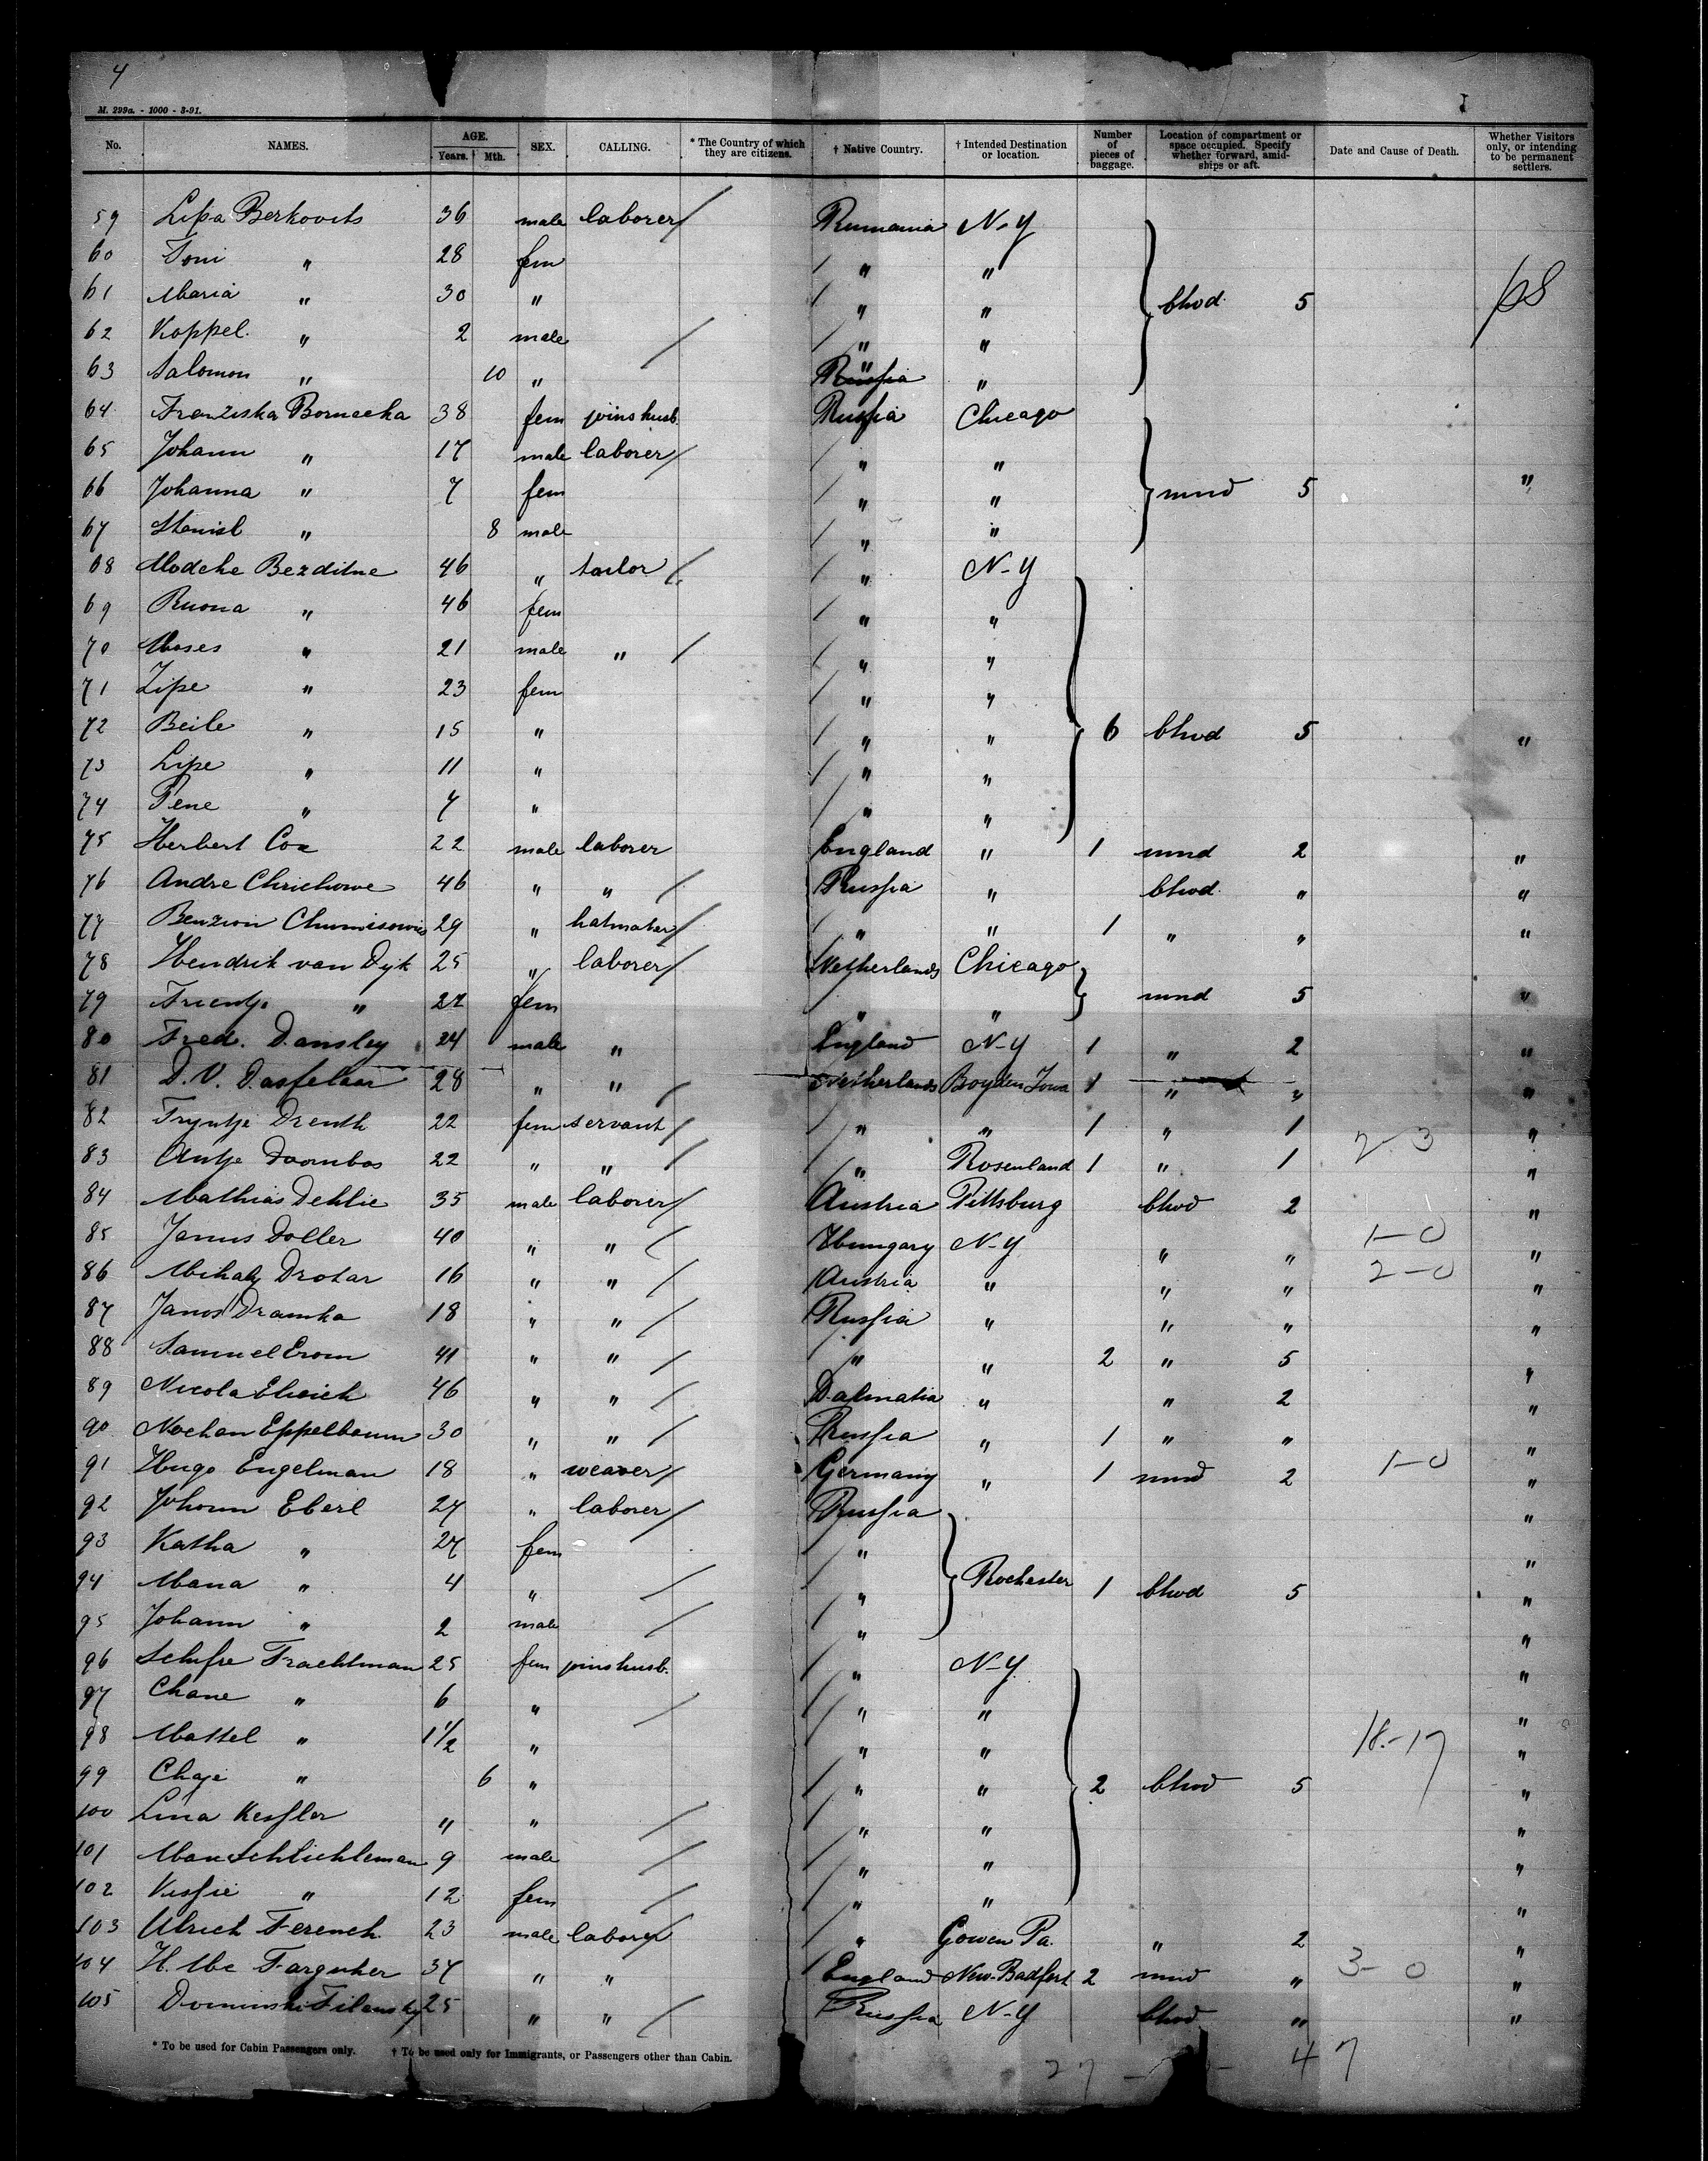 4
M. 299a. - 1000 - 3-91.
No. NAMES. AGE. Years. Mth. SEX. CALLING. * The Country of which they are citizens. † Native Country. † Intended Destination or location. Number of pieces of baggage. Location of compartment or space occupied. Specify whether forward, amidships or aft. Date and Cause of Death. Whether Visitors only, or intending to be permanent settlers.
59 Lipa Berkovits 36 male laborer / Rumania N-Y
60 Toni " 28 fem " "
61 Maria " 30 " " " bhvd 5
62 Koppel " 2 male / " "
63 Salomon " 10 " Russia " "
64 Franziska Bornacka 38 fem joins husb. Russia Chicago
65 Johann " 17 male laborer / " "
66 Johanna " 7 fem " " mnd 5 "
67 " 8 male " "
68 Modche Bezditne 46 " tailor / " N-Y
69 Ruona " 46 fem " "
70 Moses " 21 male " / " "
71 Zipe " 23 fem " "
72 Beile " 15 " " " 6 bhvd 5 "
73 Lipe " 11 " " "
74 Pene " 7 " " "
75 Herbert Cox 22 male laborer England " 1 mnd 2 "
76 Andre 46 " " / Russia " bhvd " "
77 Benzion 29 " hatmaker / " " 1 " " "
78 Hendrik van Dyk 25 " laborer / Netherlands Chicago
79 Frientje " 22 fem " " mnd 5 "
80 Fred. Dansley 24 male " England N-Y 1 " 2 "
81 D. V. 28 " " / Netherlands Boyden Iowa 1 " " "
82 Tryntje Drenth 22 fem servant / " " 1 " 1 "
83 Antje Doornbos 22 " " / " Rosenland 1 " 1 "
84 Mathias Dehlie 35 male laborer / Austria Pittsburg bhvd 2 "
85 Janus Doller 40 " " / Hungary N-Y " " 1-0 "
86 Mihaly Drotar 16 " " / Austria " " " 2-0 "
87 Janos Dramka 18 " " / Russia " " " "
88 Samuel Erom 41 " " / " " 2 " 5 "
89 Nicola 46 " " / Dalmatia " " 2 "
90 Nochan Eppelbaum 30 " " / Russia " 1 " " "
91 Hugo Engelman 18 " weaver / Germany " 1 mnd 2 1-0 "
92 Johann Eberl 27 " laborer / Russia "
93 Katha " 27 fem " "
94 Maria " 4 " / " Rochester 1 bhvd 5 "
95 Johann " 2 male / " "
96 Schifre Trachtman 25 fem joins husb. " N-Y "
97 Chane " 6 " / " " "
98 Mattel " 1 1/2 " " " 18-17 "
99 Chaje " 6 " " " 2 bhvd 5 "
100 Lina Kessler " " / " " "
101 Man Schlichteman 9 male / " " "
102 Kissie " 12 fem / " " "
103 Ulrich Ferench 23 male laborer " Gowen Pa. " 2 "
104 H. Mc Farguher 37 " " England New-Badfort 2 mnd " 3-0 "
105 Dominski Filansky 25 " " / Russia N-Y bhvd " "
* To be used for Cabin Passengers only. † To be used only for Immigrants, or Passengers other than Cabin.
27 - 47